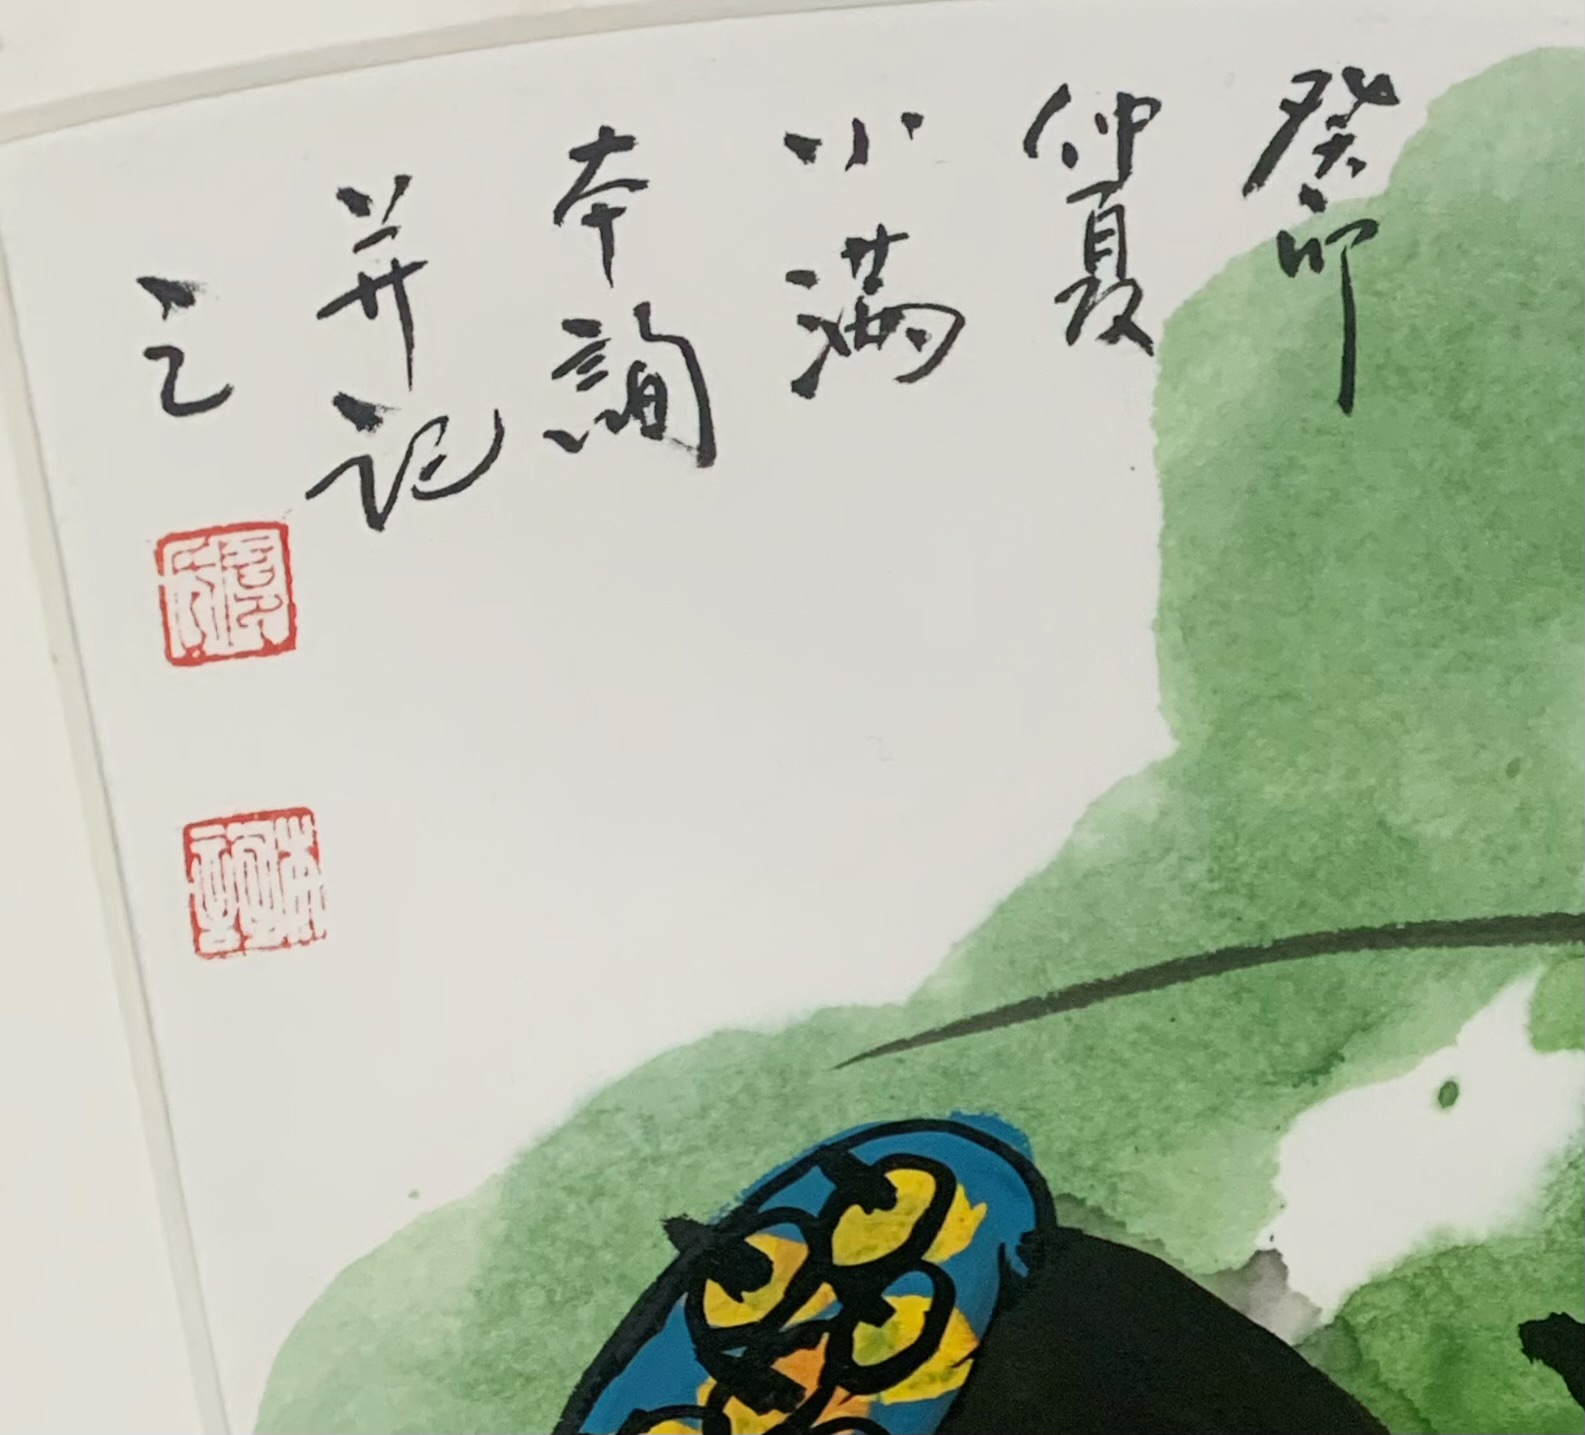 癸卯
仲夏
小满
本詢
并记
之